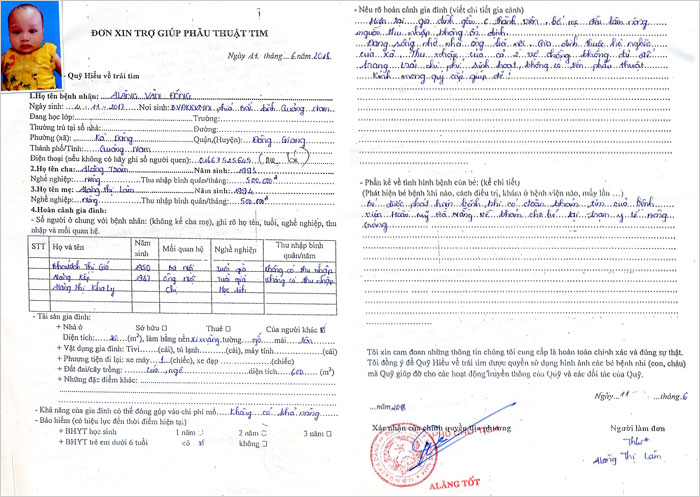 ĐƠN XIN TRỢ GIÚP PHẪU THUẬT TIM
Ngày 11 tháng 6 năm 2018
- Quỹ Hiểu về trái tim
1.Họ tên bệnh nhân: ALĂNG VĂN ĐÔNG
Ngày sinh: 4.11.2017 Nơi sinh: Quảng Nam
Đang học lớp: Trường:
Thường trú tại số nhà: Đường:
Phường (xã): Ka Dăng Quận,(Huyện): Đông Giang
Thành phố/Tỉnh: Quảng Nam
Điện thoại (nếu không có hãy ghi số người quen):
2.Họ tên cha: Alăng Năm sinh: 1993
Nghề nghiệp: nông Thu nhập bình quân/tháng: 500.000đ
3.Họ tên mẹ: Alăng Thị Lắm Năm sinh: 1994
Nghề nghiệp: Nông Thu nhập bình quân/tháng: 500.000đ
4.Hoàn cảnh gia đình:
- Số người ở chung với bệnh nhân: (không kể cha mẹ), ghi rõ họ tên, tuổi, nghề nghiệp, thu nhập và mối quan hệ.
STT Họ và tên Năm sinh Mối quan hệ Nghề nghiệp Thu nhập bình quân/năm
Thị 1950 Bà nội tuổi già không có thu nhập
Alăng 1947 Ông nội tuổi già không có thu nhập
Alăng Thị Chị Học sinh
- Tài sản gia đình:
+ Nhà ở Sở hữu □ Thuê □ Của người khác
Diện tích: (m²), làm bằng nền xi măng tường gỗ mái tôn
+ Vật dụng gia đình: Tivi (cái), tủ lạnh (cái), máy tính (cái)
+ Phương tiện đi lại: xe máy 1 (chiếc), xe đạp (chiếc)
+ Đất đai/cây trồng: lúa, ngô diện tích 600 (m²)
+ Những đặc điểm khác:
- Khả năng của gia đình có thể đóng góp vào chi phí mổ không có khả năng
- Bảo hiểm (có hiệu lực đến thời điểm hiện tại)
+ BHYT học sinh 1 năm □ 2 năm □ 3 năm □
+ BHYT trẻ em dưới 6 tuổi có không □
- Nêu rõ hoàn cảnh gia đình (viết chi tiết gia cảnh)
Hiện tại gia đình gồm 6 thành viên, bố mẹ đều làm nông
nguồn thu nhập không ổn định.
Đang sống nhà ông bà nội. Gia đình thuộc hộ nghèo
của xã, thu nhập của gia đình không đủ để
trang trải chi phí sinh hoạt, không có tiền phẫu thuật
Kính mong quý cấp giúp đỡ!
- Phần kể về tình hình bệnh của bé: (kể chi tiết)
(Phát hiện bé bệnh khi nào, cách điều trị, khám ở bệnh viện nào, mấy lần …)
Bé được phát hiện bệnh khi có đoàn khám tim của bệnh
viện Hoàn Mỹ Đà Nẵng về khám cho bé tại trạm y tế
Tôi xin cam đoan những thông tin chúng tôi cung cấp là hoàn toàn chính xác và đúng sự thật.
Tôi đồng ý để Quỹ Hiểu về trái tim được quyền sử dụng hình ảnh các bé bệnh nhi (con, cháu) mà Quỹ giúp đỡ cho các hoạt động Truyền thông của Quỹ và các đối tác của Quỹ.
Ngày 11 tháng 6
năm 2018
Xác nhận của chính quyền địa phương
Người làm đơn
Alăng Thị Lắm
ALĂNG TỐT